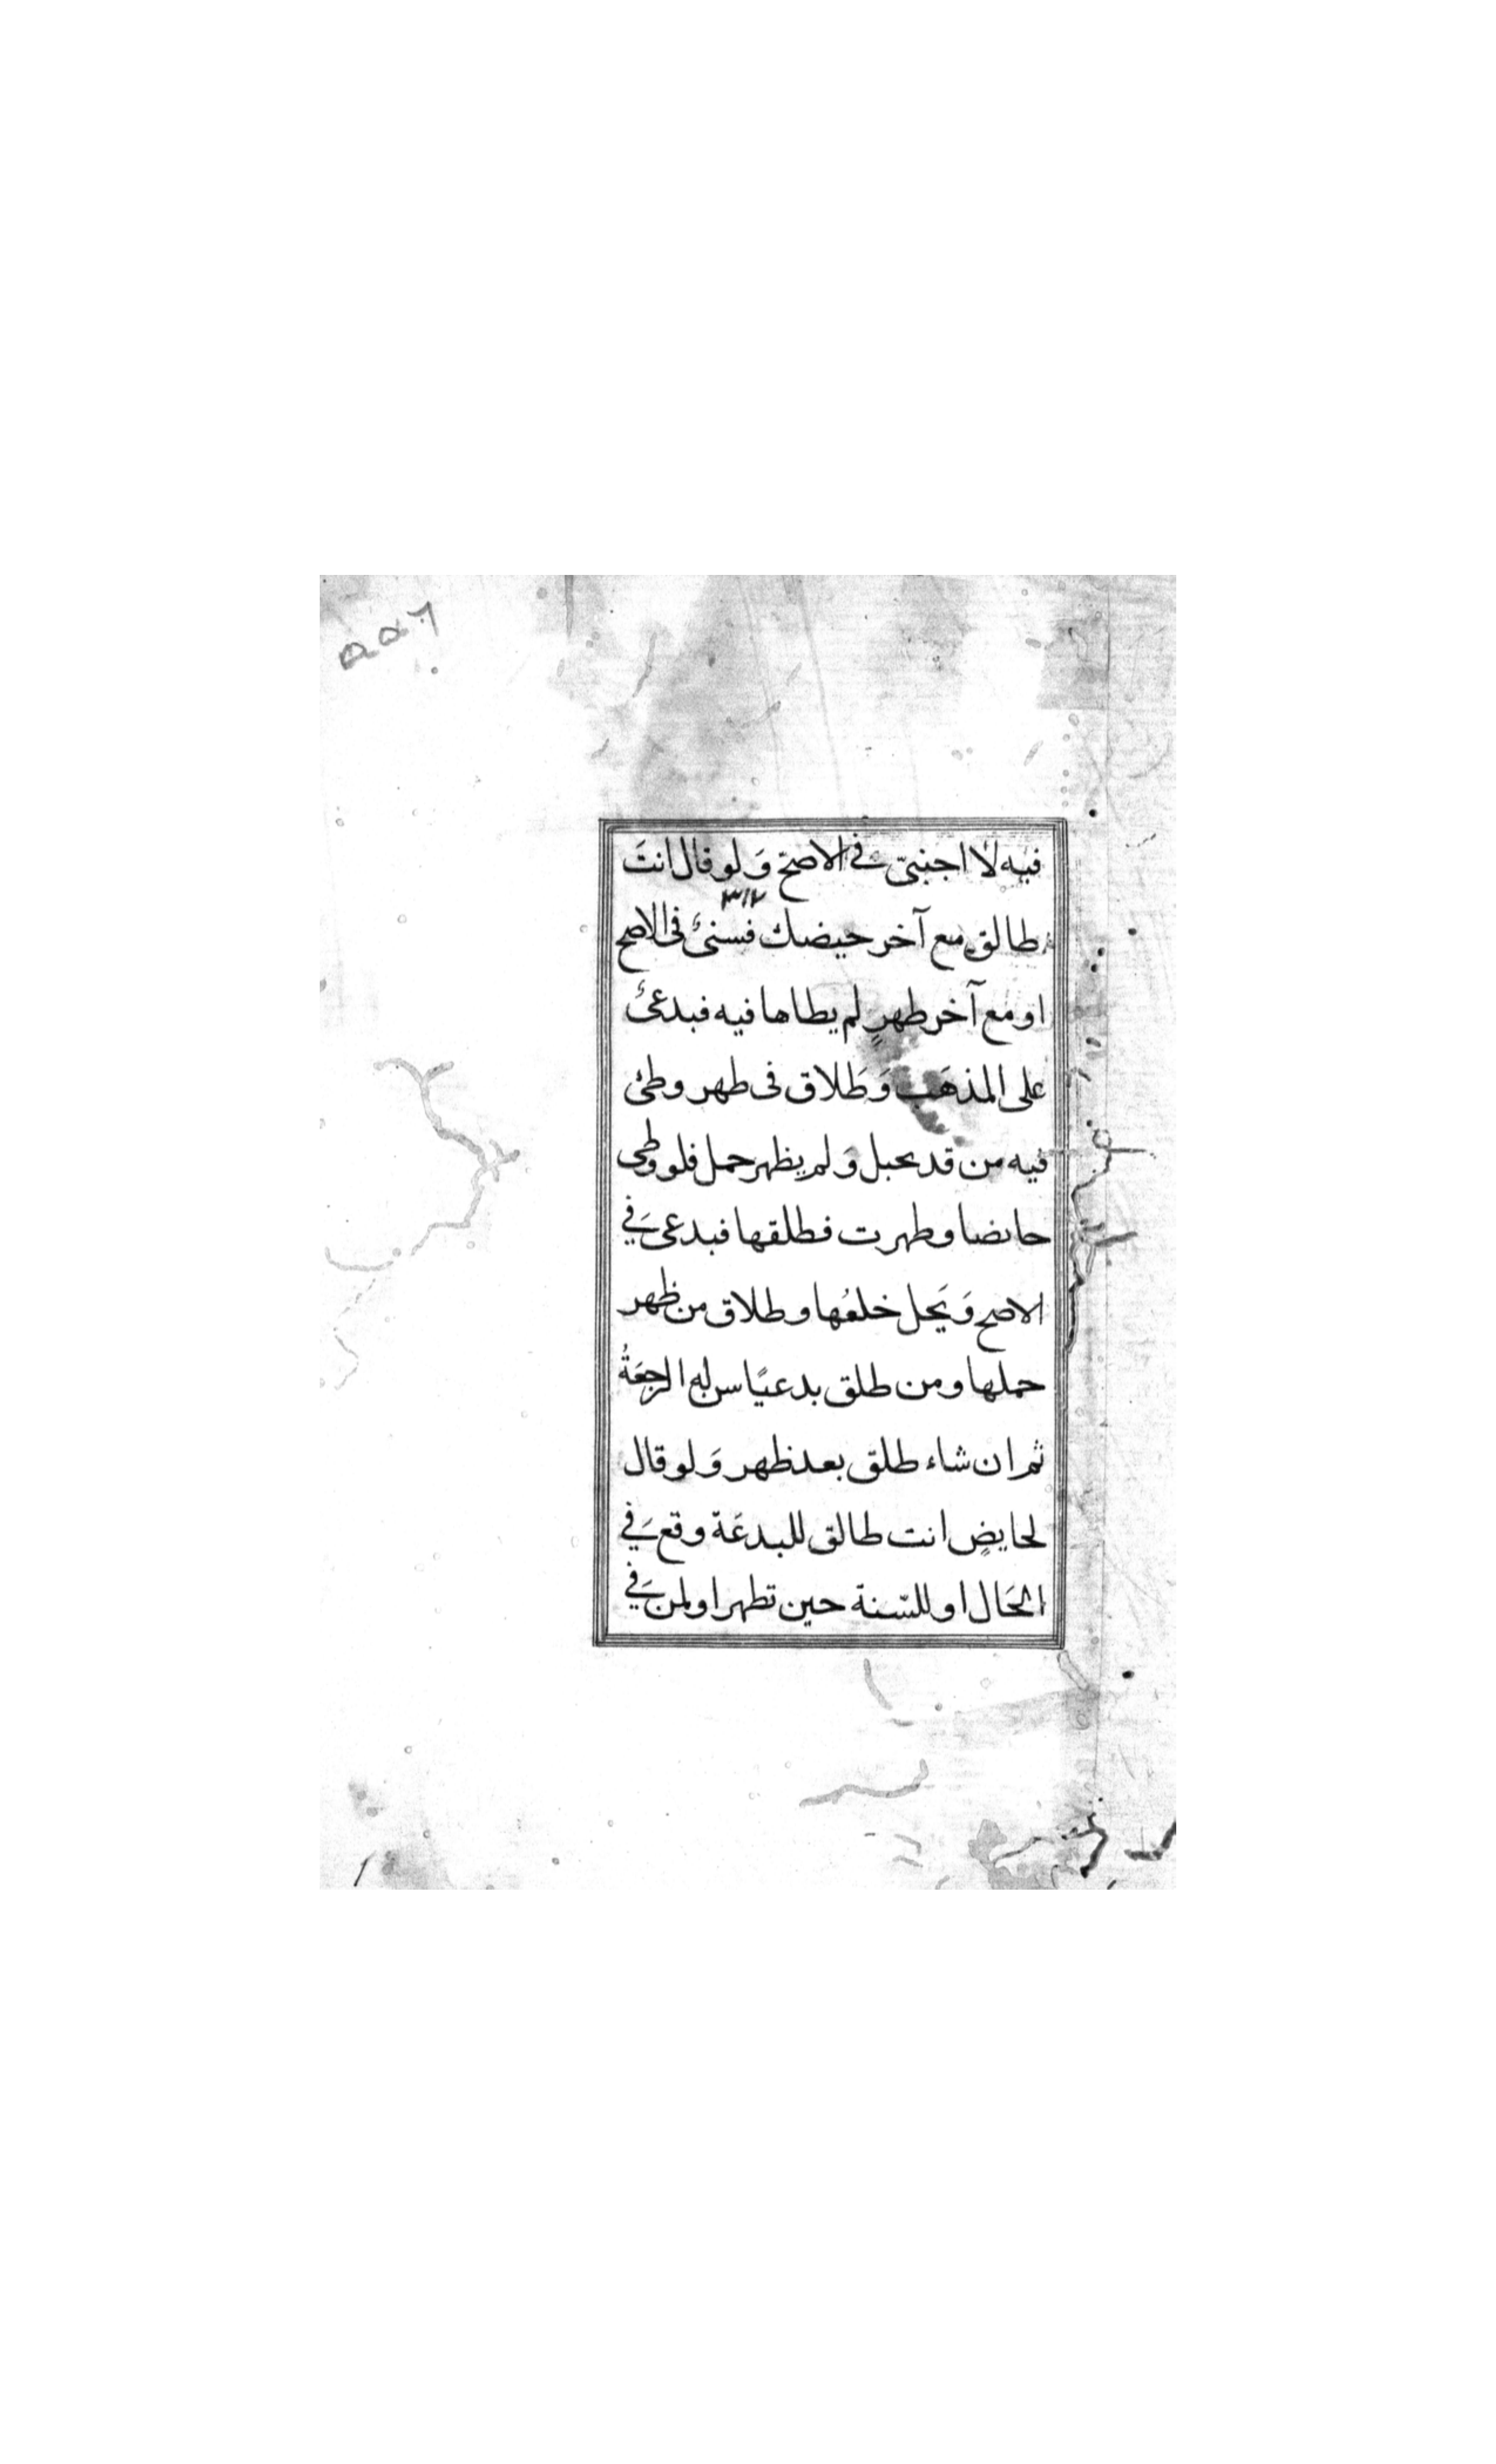 ٥٥٦
فيه لا اجنبىّ فے الاصحّ وَلو قال انتَ
٣١٢
طالق مع آخر حيضك فسنىٌ فى الاصح
او مع آخر طهرٍ لم يطاها فيه فبدعىٌ
على المذهَب وَطَلاق فى طهر وطئ
فيه من قد تحبل وَلم يظهر حمل فلو وطى
حائضا وطهرت فطلقها فبدعى فَے
الاصح وَيَحل خلعُها وطلاق من ظهر
حملها ومن طلق بدعيًا سن له الرجعَةُ
ثم ان شاء طلق بعد ظهر وَلو قال
لحايضٍ انت طالق للبدعَة وقع فَے
الحَال او للسّنة حين تطهر او لمن فَے